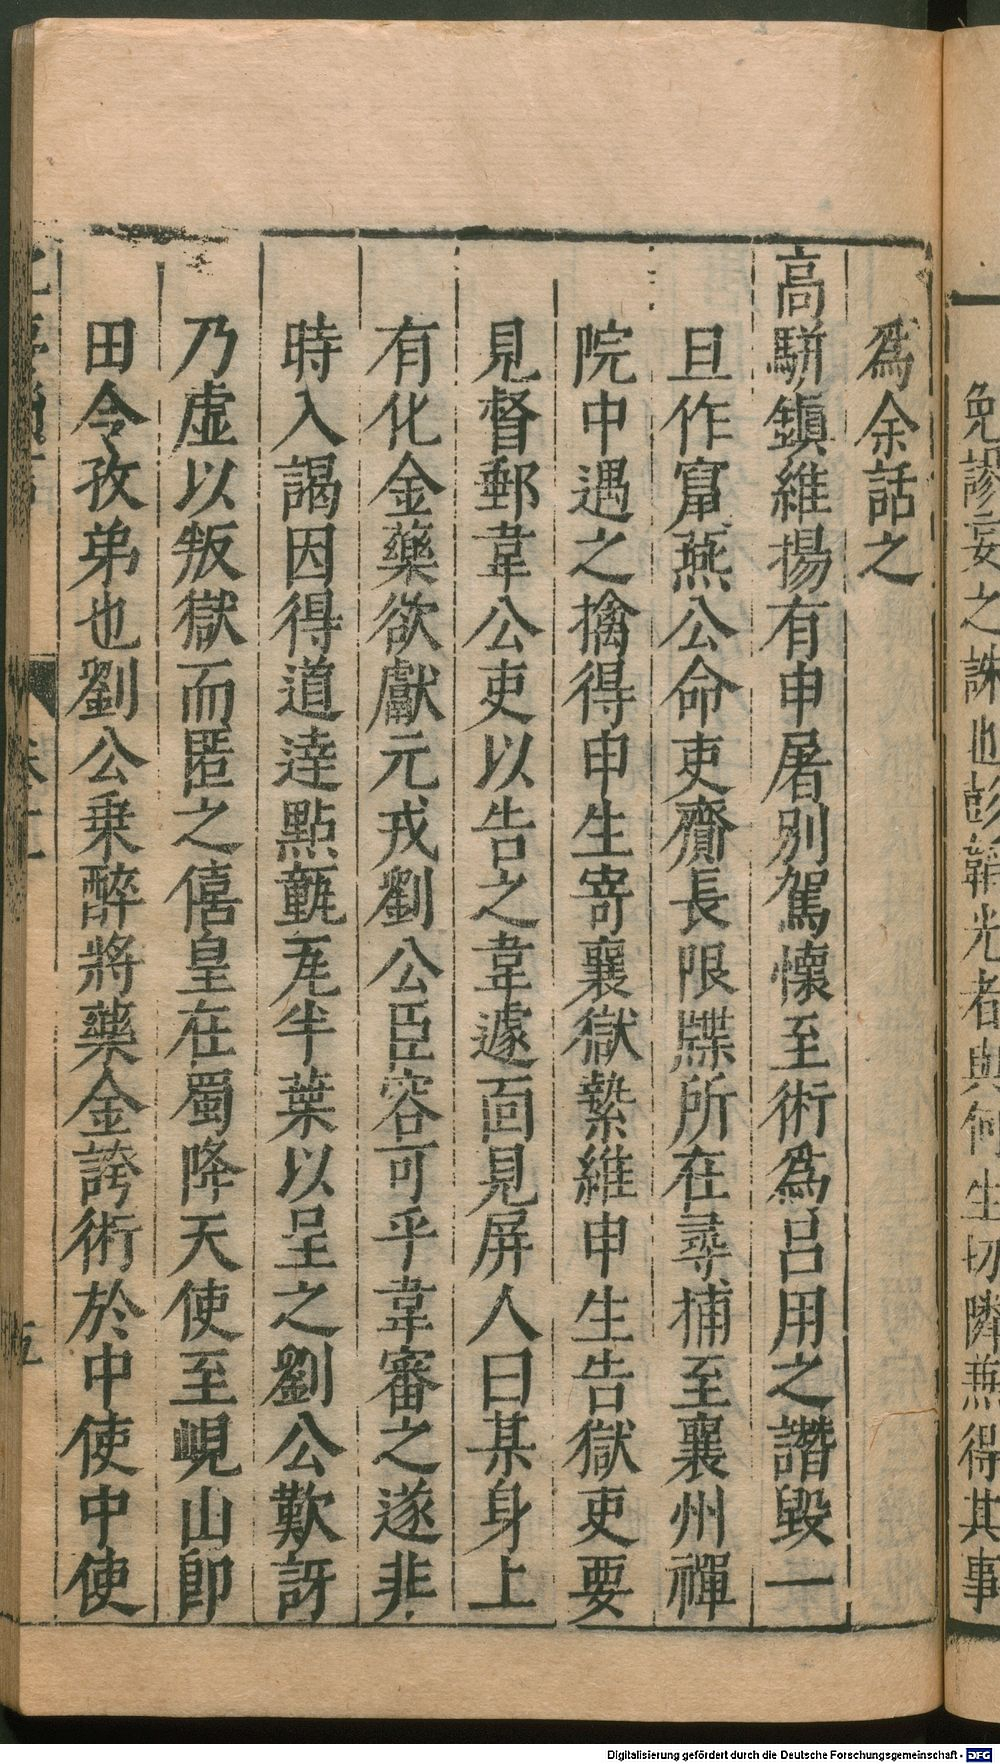 免謬妄之誅也彭韜光者與何生切隣燕得其事
為余話之
高駢鎮維揚有申屠別駕懷至術為呂用之譖毀一
且作竄燕公命吏齎長限牒所在尋捕至襄州禪
院中遇之擒得申生寄襄獄縶維申生告獄吏要
見督郵韋公吏以告之韋遽面見屏人曰某身上
有化金藥欲獻元戎劉公臣容可乎韋審之遂非
時入謁因得道達點𤮘瓦半葉以呈之劉公歎訝
乃虛以叛獄而匿之僖皇在蜀降天使至峴山即
田令孜弟也劉公乗醉將藥金誇術於中使中使
五
Digitalisierung gefördert durch die Deutsche Forschungsgemeinschaft - DFG